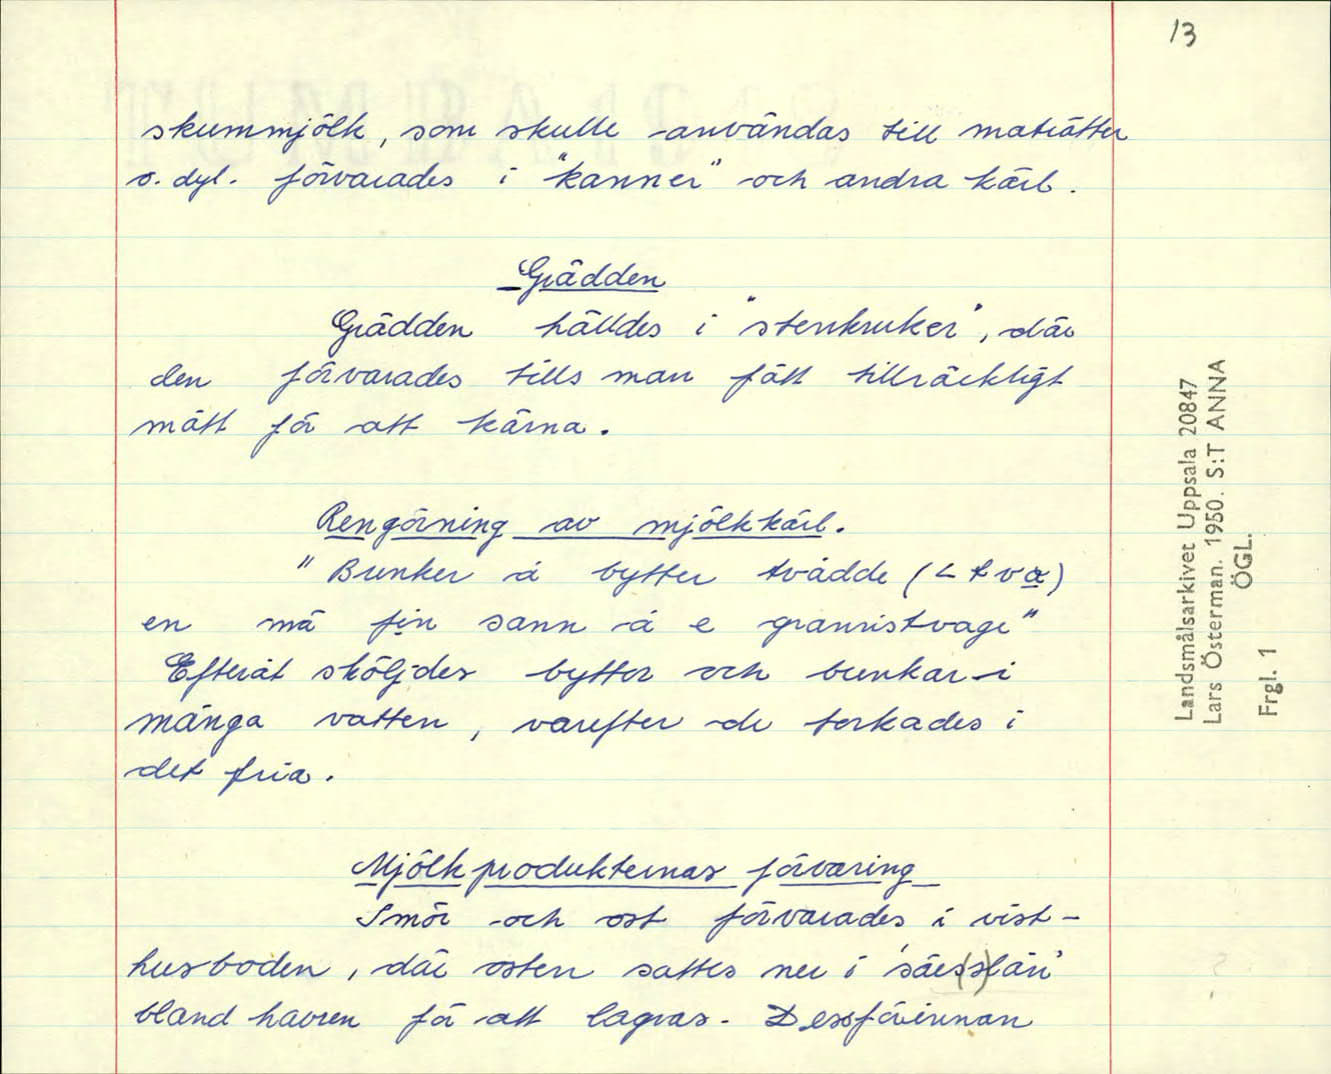 13
skummjölk, som skulle användas till maträtter
o. dyl. förvarades i "kanner" och andra kärl.
Grädden
Grädden hälldes i "stenkruker", där
den förvarades tills man fått tillräckligt
mått för att kärna.
Rengörning av mjölkkärl.
"Bunker å bytter tvådde (< tva)
en må fin sann å e granristvage"
Efteråt sköljdes byttor och bunkar i
många vatten, varefter de torkades i
det fria.
Mjölkprodukternas förvaring
Smör och ost förvarades i vist-
husboden, där osten sattes ner i
bland havren för att lagras. Dessförinnan
Landsmålsarkivet Uppsala 20847
Lars Österman. 1950. S:T ANNA
ÖGL.
Frgl. 1